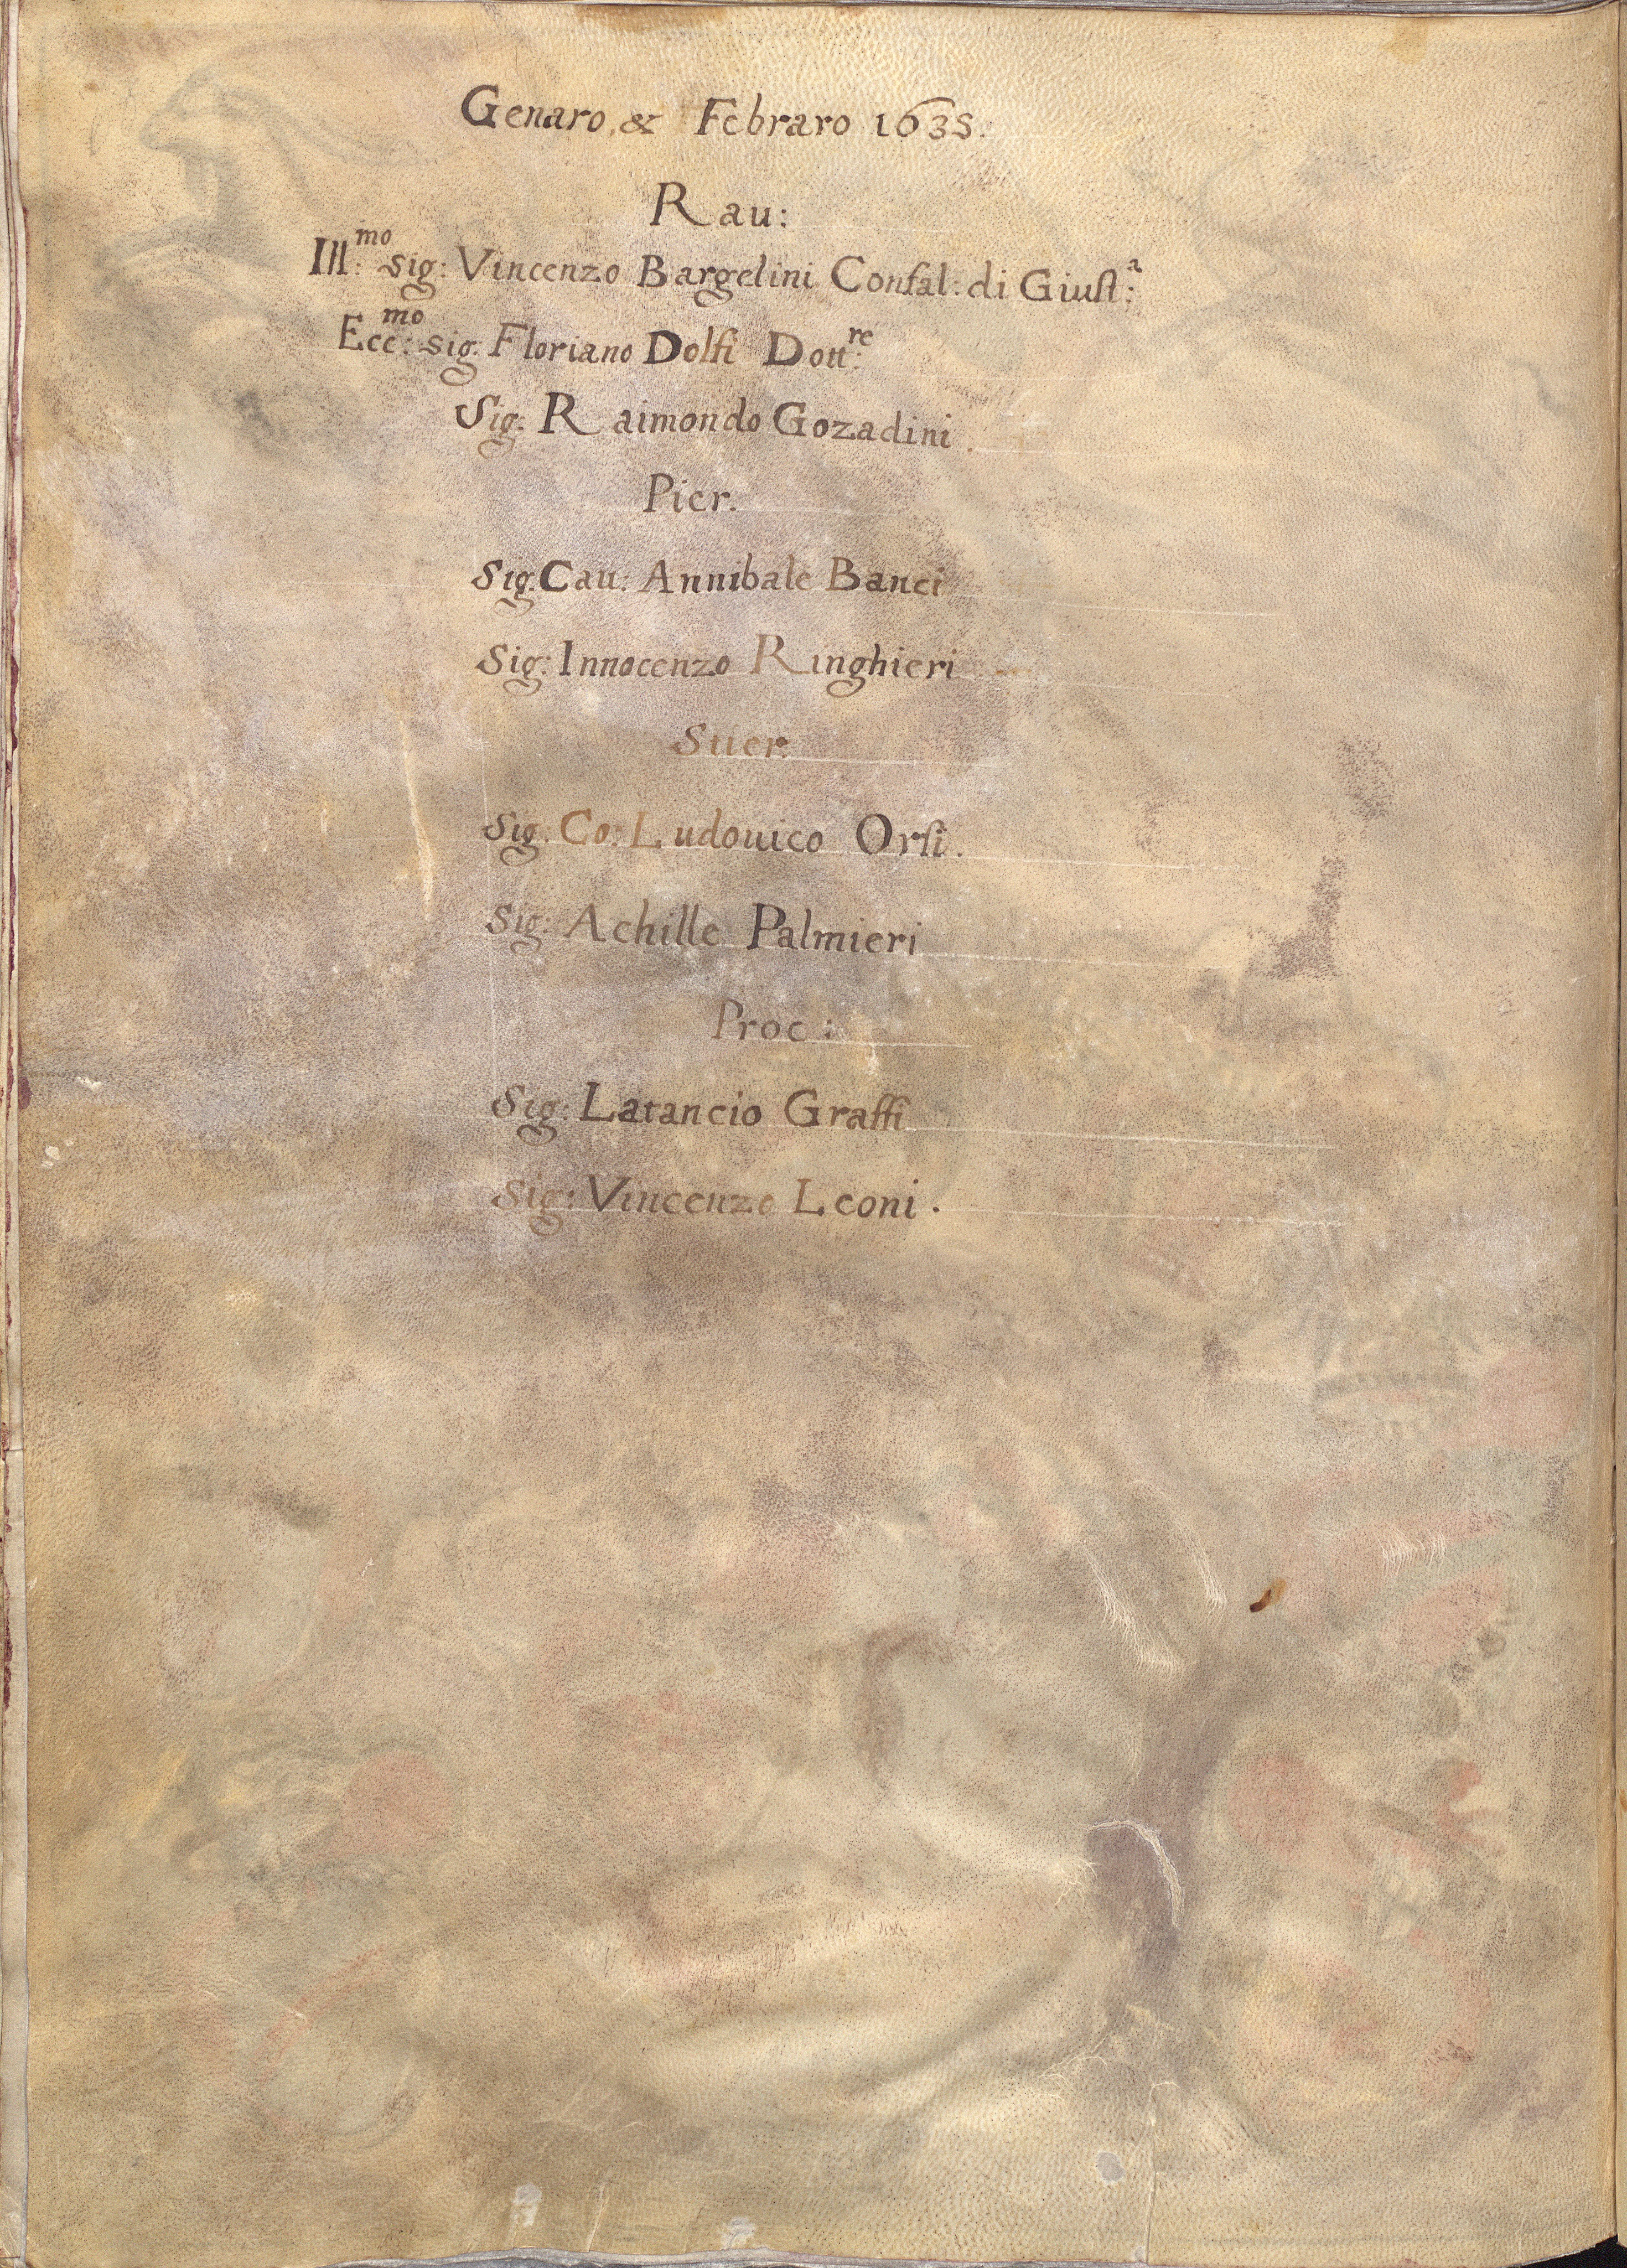 Genaro, & Febraro 1635.
Rau:
Ill:mo sig: Vincenzo Bargelini Confal: di Giust:a
Ecc:mo sig. Floriano Dolfi Dott:re
Sig: Raimondo Gozadini.
Pier.
Sig. Cau: Annibale Banci
Sig: Innocenzo Ringhieri
Stier.
Sig: Co: Ludouico Orsi.
Sig: Achille Palmieri
Proc:
Sig: Latancio Graffi
Sig: Vincenzo Leoni.